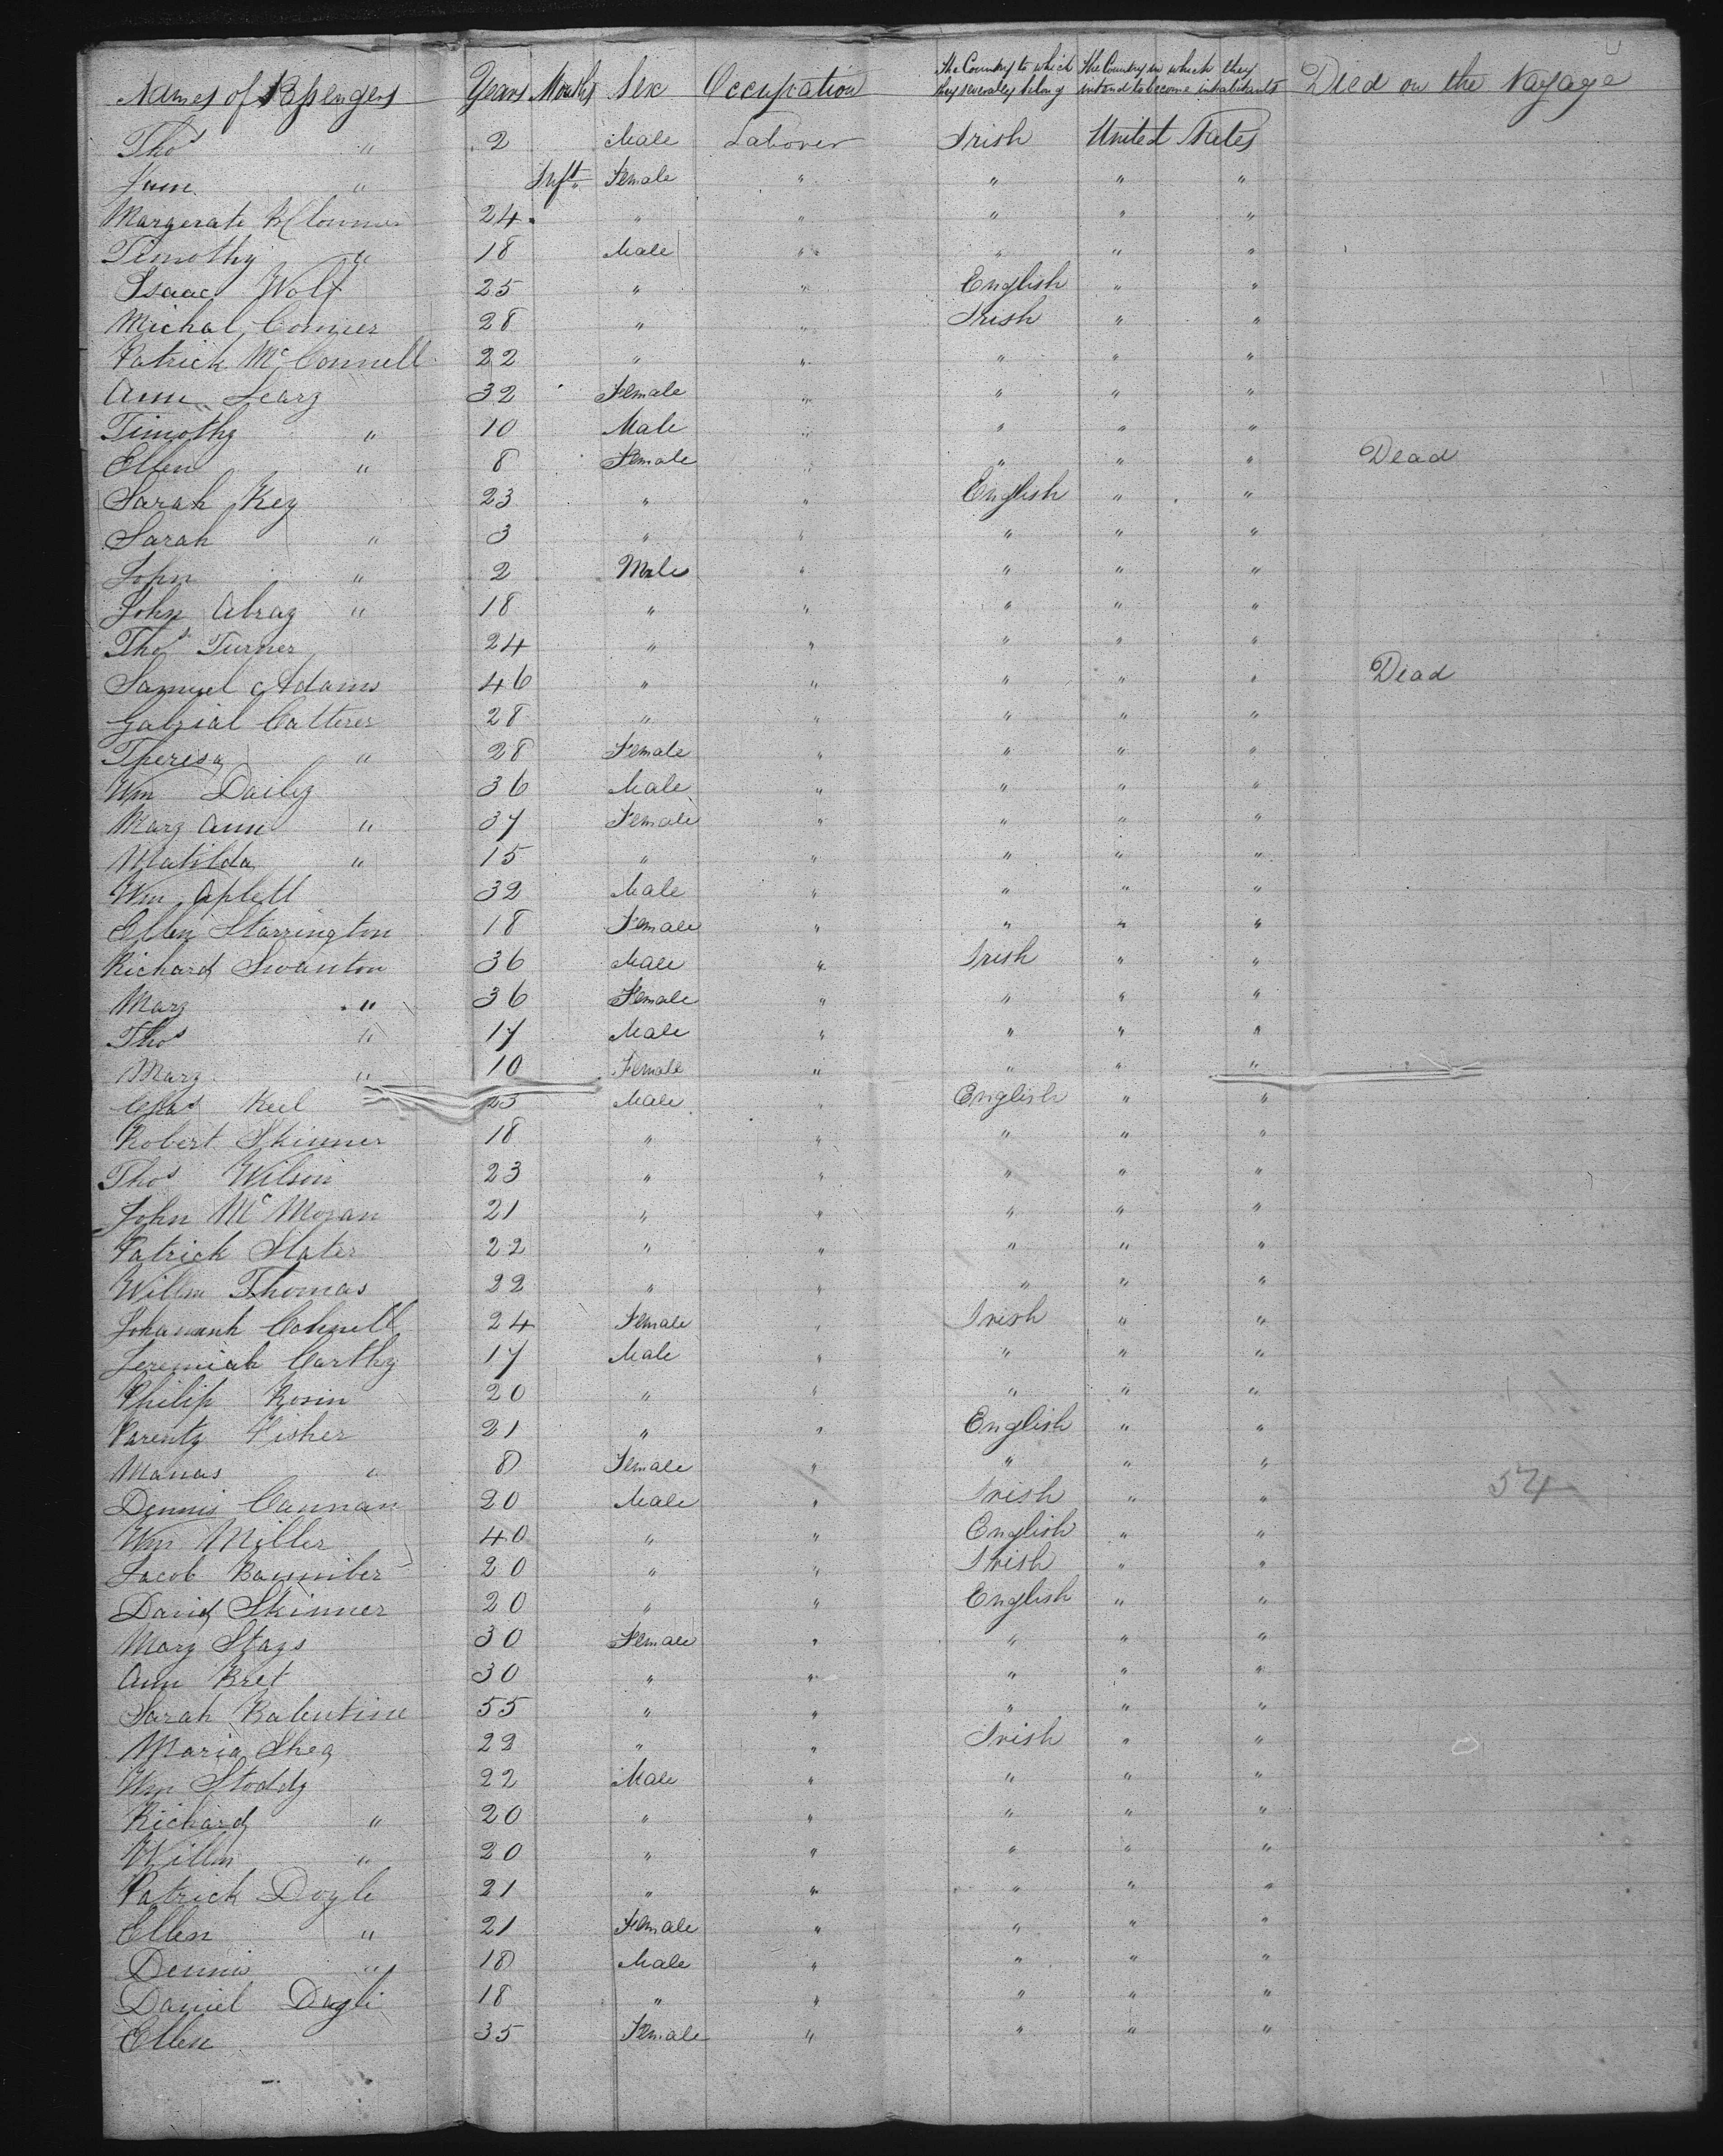 Names of Passengers Years Months Sex Occupation The Country to which they severaley belong The Country in which they intend to become inhabitants Died on the Vayage
Thos " 2 Male Labover Irish United States
Jane " Inft Female " " " "
Margerate 24 " " " " "
Timothy " 18 Male " " " "
Isaac Wolf 25 " " English " "
Michal Conner 28 " " Irish " "
Patrick McConnell 22 " " " " "
Ann Leary 32 Female " " " "
Timothy " 10 Male " " " "
Ellen " 8 Female " " " " Dead
Sarah Key 23 " " English " "
Sarah " 3 " " " " "
John " 2 Male " " " "
John Abray " 18 " " " " "
Thos Turner 24 " " " " "
Samuel Adams 46 " " " " " Dead
Gabrial Catterer 28 " " " " "
Theresa " 28 Female " " " "
Wm Daily 36 Male " " " "
Mary Ann " 37 Female " " " "
Matilda " 15 " " " " "
Wm Aplett 32 Male " " " "
Ellen Starrington 18 Female " " " "
Richard Swanton 36 Male " Irish " "
Mary " 36 Female " " " "
Thos " 17 Male " " " "
Mary " 10 Female " " " "
Chas Keel 23 Male " English " "
Robert Skinner 18 " " " " "
Thos Wilson 23 " " " " "
John McMoran 21 " " " " "
Patrick Slater 22 " " " " "
Willm Thomas 22 " " " " "
Johannah Connell 24 Female " Irish " "
Jeremiah Carthy 17 Male " " " "
Philip Rosin 20 " " " " "
Parentz Fisher 21 " " English " "
Manas " 8 Female " " " "
Dennis Cannan 20 Male " Irish " " 54
Wm Miller 40 " " English " "
Jacob 20 " " Irish " "
David Skinner 20 " " English " "
Mary Stags 30 Female " " " "
Ann Bret 30 " " " " "
Sarah Balentine 55 " " " " "
Maria Shea 22 " " Irish " "
Wm Stoddy 22 Male " " " "
Richard " 20 " " " " "
Willm " 20 " " " " "
Patrick Doyle 21 " " " " "
Ellen " 21 Female " " " "
Dennis " 18 Male " " " "
Daniel 18 " " " " "
Ellen 35 Female " " " "